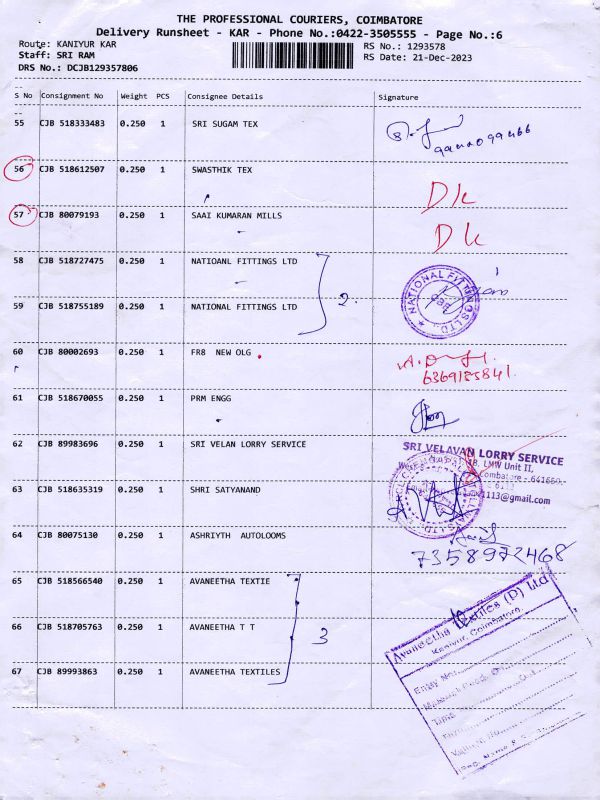 THE PROFESSIONAL COURIERS, COIMBATORE
Delivery Runsheet - KAR - Phone No.:0422-3505555 - Page No.:6
Route: KANIYUR KAR
Staff: SRI RAM
DRS No.: DCJB129357806
RS No.: 1293578
RS Date: 21-Dec-2023
S No Consignment No Weight PCS Consignee Details Signature
55 CJB 518333483 0.250 1 SRI SUGAM TEX
56 CJB 518612507 0.250 1 SWASTHIK TEX
57 CJB 80079193 0.250 1 SAAI KUMARAN MILLS
58 CJB 518727475 0.250 1 NATIOANL FITTINGS LTD
2.
NATIONAL FITTINGS LTD.
59 CJB 518755189 0.250 1 NATIONAL FITTINGS LTD
60 CJB 80002693 0.250 1 FR8 NEW OLG
6369185841.
61 CJB 518670055 0.250 1 PRM ENGG
62 CJB 89983696 0.250 1 SRI VELAN LORRY SERVICE
SRI VELAVAN LORRY SERVICE
LMW Unit II,
1113@gmail.com
63 CJB 518635319 0.250 1 SHRI SATYANAND
64 CJB 80075130 0.250 1 ASHRIYTH AUTOLOOMS
7358972468
65 CJB 518566540 0.250 1 AVANEETHA TEXTIE
66 CJB 518705763 0.250 1 AVANEETHA T T
3
67 CJB 89993863 0.250 1 AVANEETHA TEXTILES
Avaneetha Textiles (P) Ltd
Kaniyur, Coimbatore.